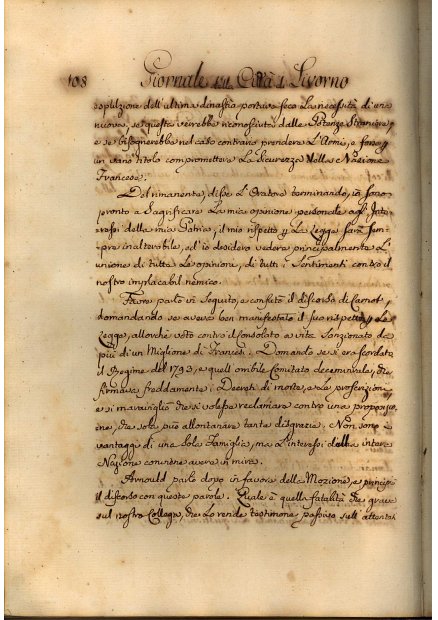 108 Giornale di Città Livorno
espulzione dell'ultima dinastia portava seco la necessità di una
nuova, se questa verrebbe riconosciuta dalle Potenze Straniere,
e se bisognerebbe nel caso contrario prendere l'Armi, e forse p
un vano titolo compromettere la Sicurezza della Nazione
Francese.
Del rimanente, disse l'Oratore terminando, io sono
pronto a Sagrificare la mia opinione personale agl'Inte
ressi della mia Patria, il mio rispetto p la Legge sarà sem
pre inalterabile, ed io desidero vedere principalmente l'
unione di tutte le opinioni, di tutti i Sentimenti contro il
nostro implacabil nemico.
Favre parlò in Seguito, e confutò il discorso di Carnot,
domandando se aveva ben manifestato il suo rispetto p la
Legge, allorchè votò contro il Consolato a vita sanzionato da
più di un Miglione di Francesi. Domandò se si era scordato
il Regime del 1793, e quell'orribile Comitato decemvirale, che
firmava freddamente Decreti di morte, e le proscrizioni
e si maravigliò che si volesse reclamare contro una proposizio
ne, che sola può allontanare tante disgrazie. Non sono i
vantaggi di una sola Famiglia, ma l'interessi della intera
Nazione conviene avere in mira.
Arnould parlò dopo in favore della Mozione, e principiò
il discorso con queste parole. Quale è quella fatalità che grava
sul nostro Collega, che lo rende testimone passivo sull'attentat